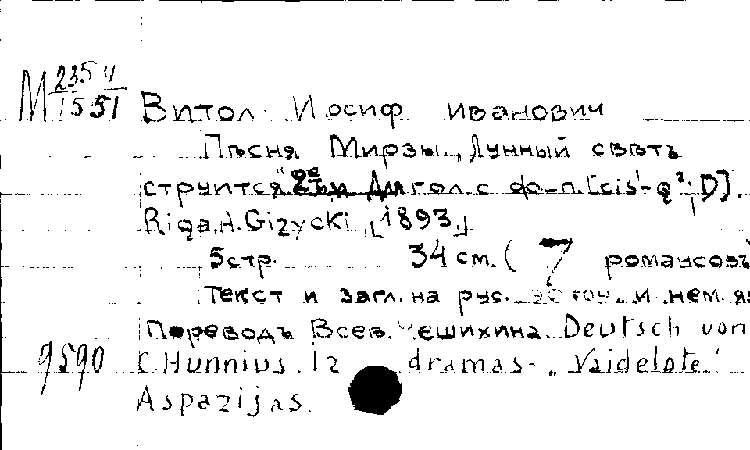 М 235 4/1551
Витол Иосиф иванович
Пѣсня Мирзы „Лунный свѣтъ
струится" Для гол. с ф-п. [cis¹-g²; D].
Riga, A. Gizycki [1893]
5 стр. 34 см. ( 7 романсовъ
Текст и загл. на рус. и нем. яз
Переводъ Всев. Чешихина. Deutsch von
9590 C. Hunnius. Iz dramas „Vaidelote"
Aspazijas.